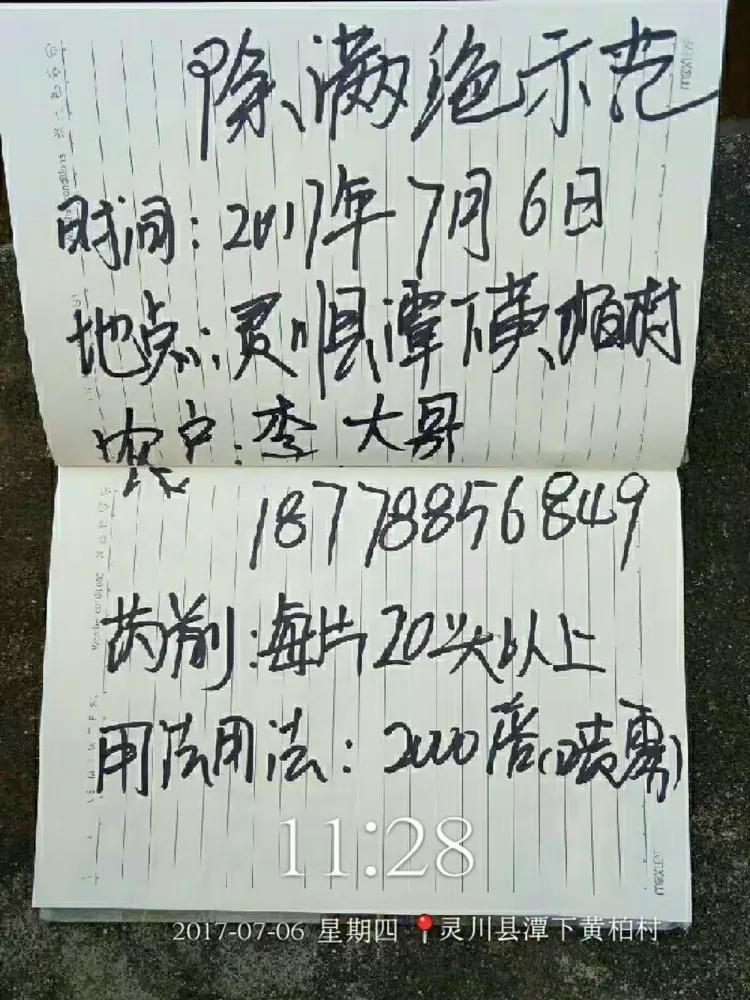 除满绝示范
时间：2017年7月6日
地点：灵川县潭下黄柏村
农户：李大哥
18778856849
药前：每片20头以上
用法用法：2000倍（喷雾）
11:28
2017-07-06 星期四 灵川县潭下黄柏村
maxleaf